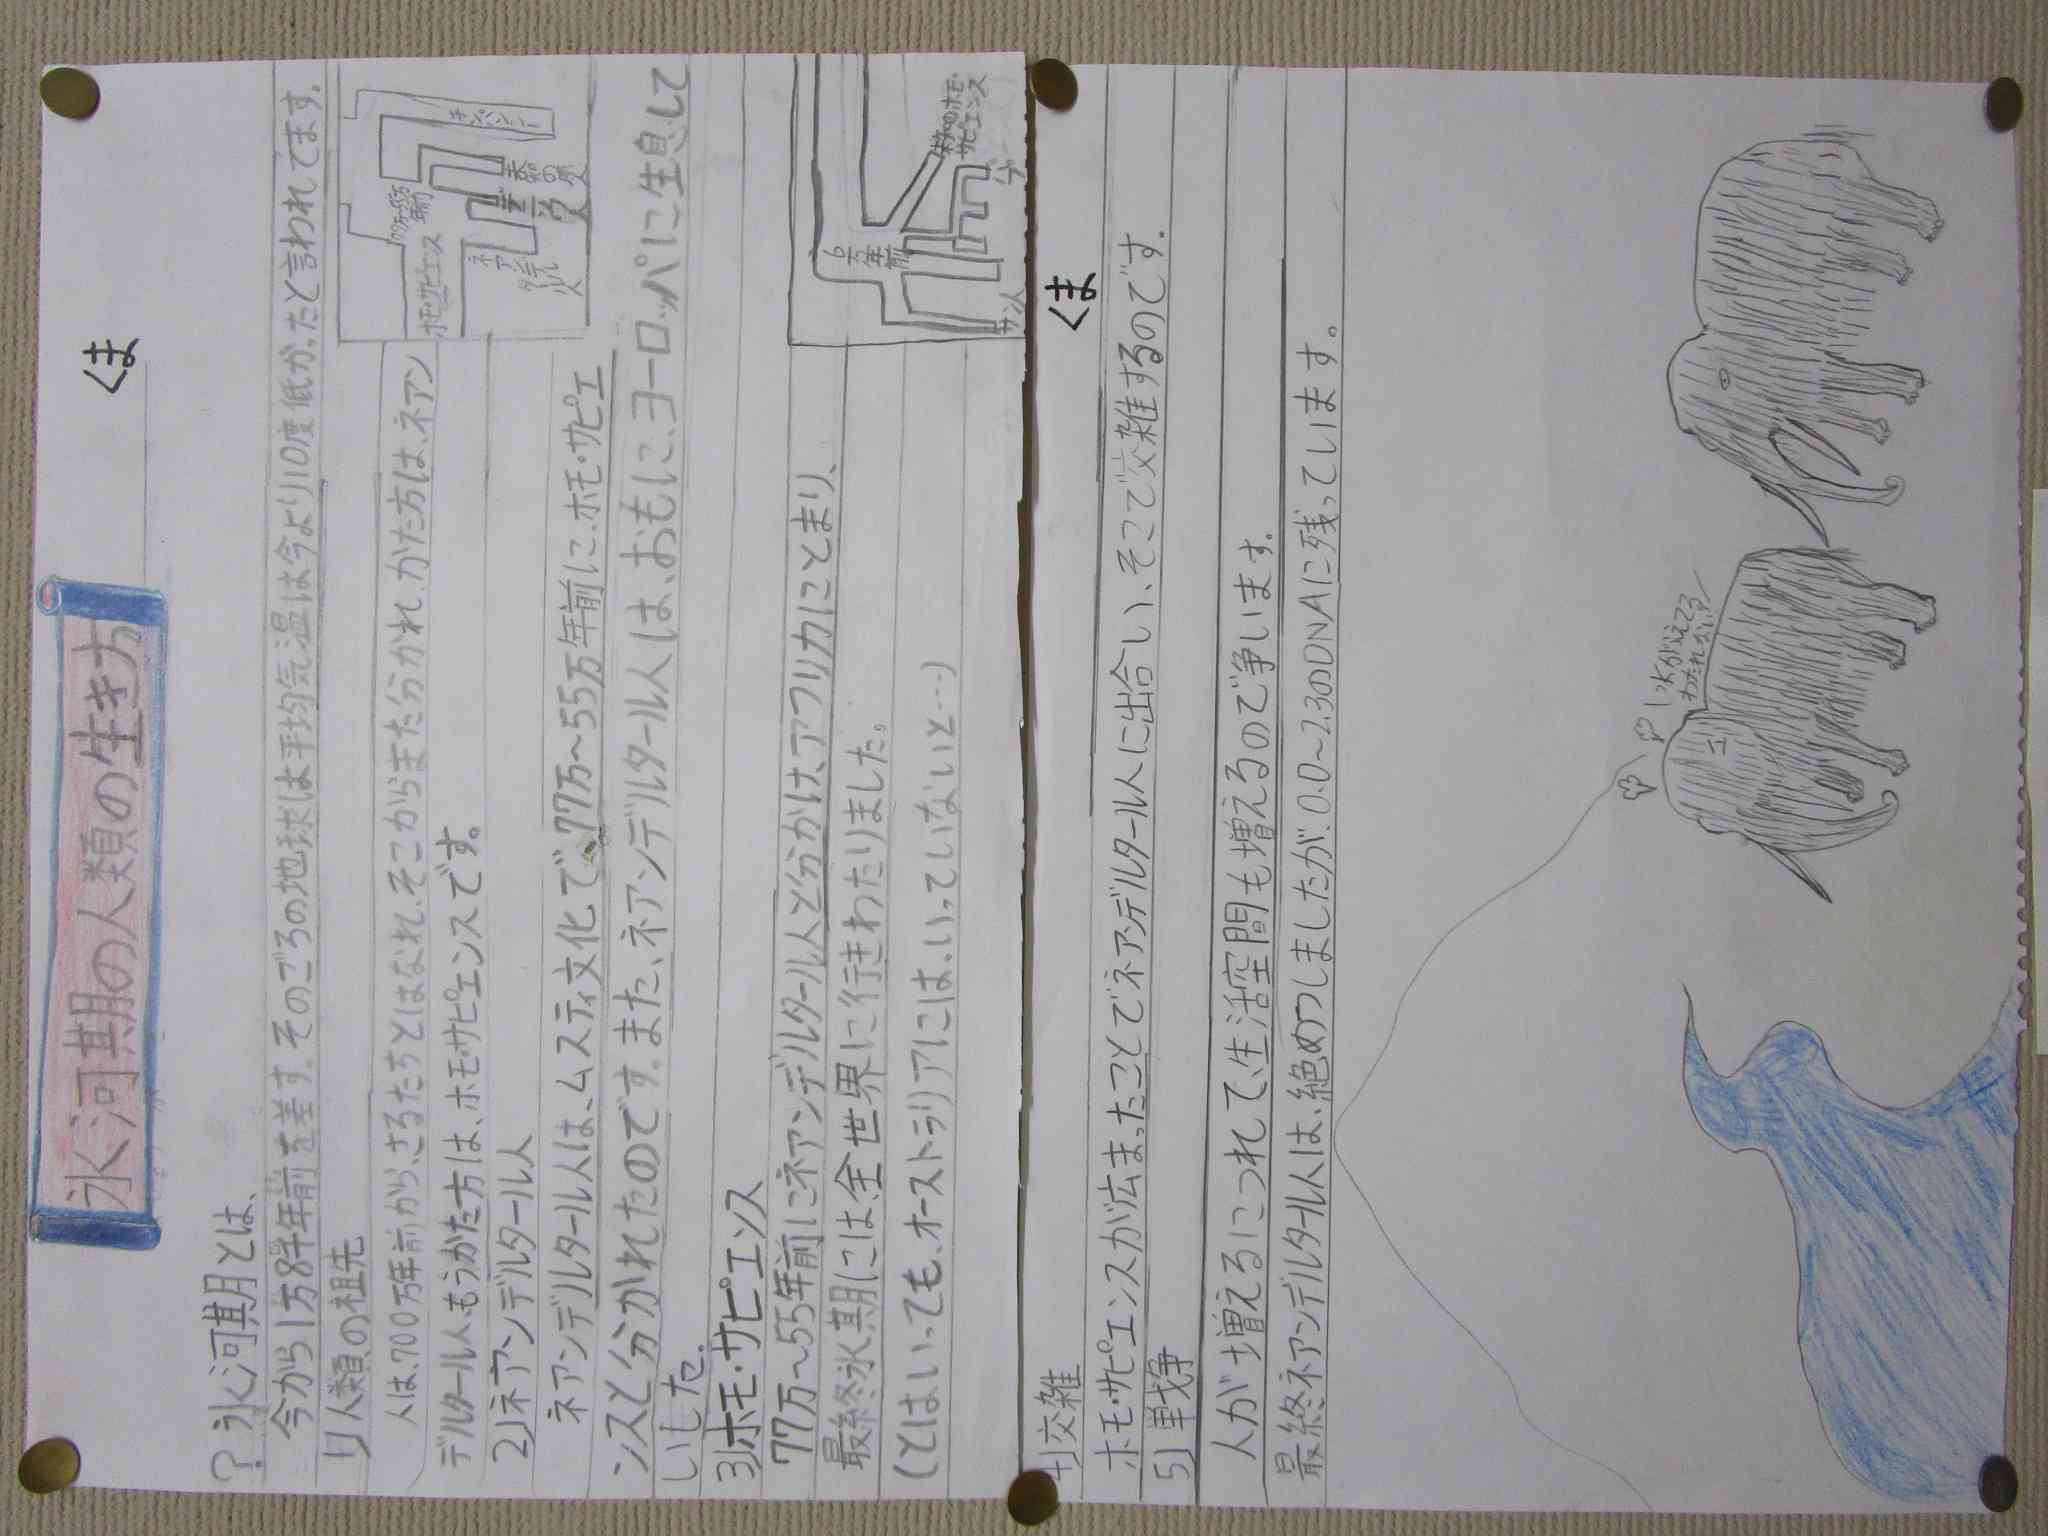 氷河期の人類の生き方
くま
? 氷河期とは、
今から1万8千年前を差す。そのごろの地球は平均気温は今より10度低かったと言われてます。
1」人類の祖先
人は、700万年前から、さるたちとはなれ、そこからまた分かれ、かた方は、ネアン
デルタール人、もうかた方は、ホモ・サピエンスです。
700万年前
ホモ・サピエンス
チンパンジー
未知の原人
デニソワ人
ネアンデルタール人
2」ネアンデルタール人
ネアンデルタール人は、ムスティ文化で77万〜55万年前に、ホモ・サピエ
ンスと分かれたのです。また、ネアンデルタール人は、おもに、ヨーロッパに生息して
いました。
3」ホモ・サピエンス
77万〜55年前にネアンデルタール人と分かけ、アフリカにとまり、
最終氷期には、全世界に行きわたりました。
(とはいっても、オーストラリアにはいっていないと…)
6万年前
未知のホモ・サピエンス
サン人
くま
4」交雑
ホモ・サピエンスが広まったことでネアンデルタール人に出合い、そこで交雑するのです。
5」戦争
人が増えるにつれて、生活空間も増えるので争います。
最終ネアンデルタール人は、絶めつしましたが、0.0〜2.30DNAに残っています。
水がふえてる
わたれない